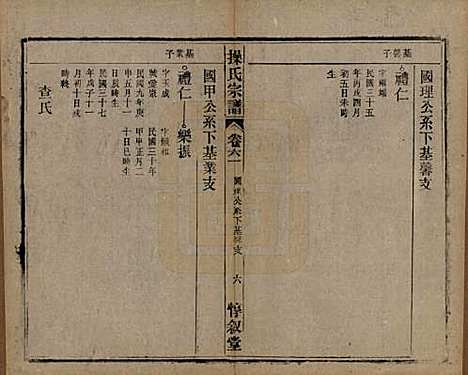 國理公系下基馨支
基馨子
禮仁
民國三十五
年丙戌四月
初五日未時
生
操氏宗譜
卷六一
國理公系下基馨支
六
惇敘堂
國甲公系下基業支
基業子
禮仁
樂振
字玉成
民國九年庚
申十二月廿
五日戌時生
民國三十年
甲申正月二
十日巳時生
查氏
民國十一
年戌子十一
月初十日戌
時歿